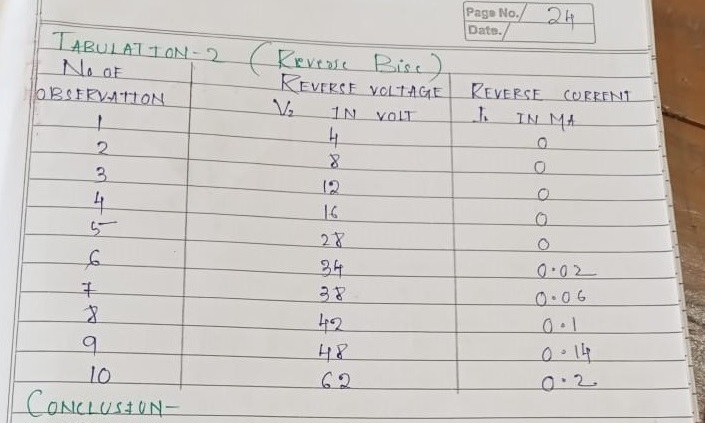 Page No. 24
Date.
TABULATION-2 (Reverse Bise)
No OF OBSERVATION | REVERSE VOLTAGE V₂ IN VOLT | REVERSE CURRENT IN MA
1 | 4 | 0
2 | 8 | 0
3 | 12 | 0
4 | 16 | 0
5 | 28 | 0
6 | 34 | 0.02
7 | 38 | 0.06
8 | 42 | 0.1
9 | 48 | 0.14
10 | 62 | 0.2
CONCLUSION-